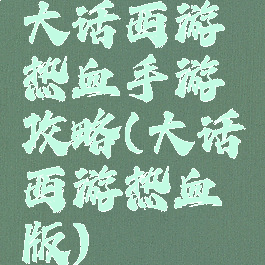 大话西游
热血手游
攻略(大话
西游热血
版)